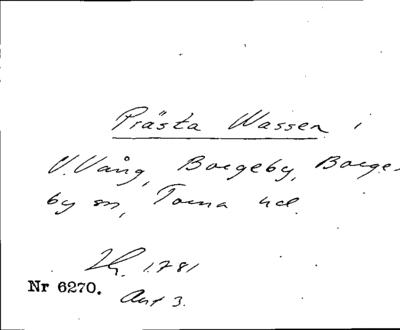 Prästa Wassen i
V. Vång, Borgeby, Borge-
by sn, Torna hd.
1781
Nr 6270. Akt 3.